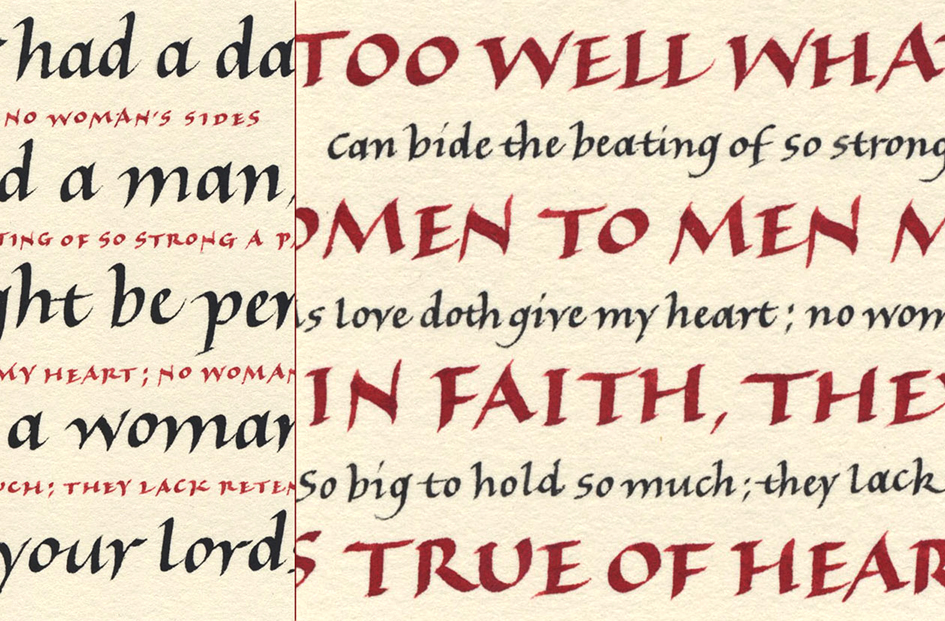 had a da
NO WOMAN'S SIDES
d a man,
TING OF SO STRONG A P
ght be per
MY HEART; NO WOMAN
a woman
UCH; THEY LACK RETEN
your lords
TOO WELL WHAT
can bide the beating of so strong
OMEN TO MEN M
As love doth give my heart; no wom
IN FAITH, THEY
So big to hold so much; they lack
S TRUE OF HEAR